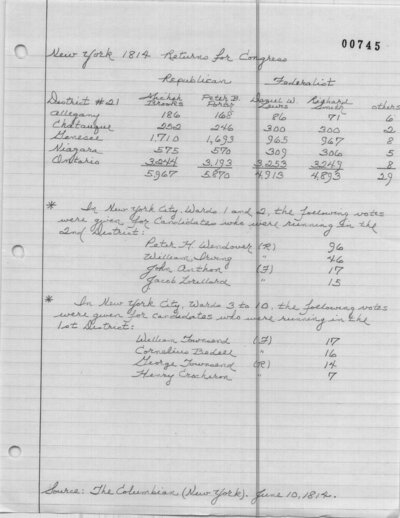 00745
New York 1814 Returns for Congress
Republican Federalist
Micah Peter B. Daniel W. Lewis
District #21 Brooks Porter others
Allegany 186 168 86 71 6
Chatauque 252 246 300 300 2
Genesee 1,710 1,693 965 967 8
Niagara 575 570 309 306 5
Ontario 3,244 3,193 3,253 3249 8
5967 5870 4,913 4,893 29
* In New York City Wards 1 and 2, the following votes
were given for candidates who were running in the
2nd District:
Peter H. Wendover (R) 96
William Irving " 46
John Anthon (F) 17
Jacob Lorillard " 15
* In New York City, Wards 3 to 10, the following votes
were given for candidates who were running in the
1st District:
William Townsend (F) 17
Cornelius Bedell " 16
George Townsend (R) 14
Henry Crocheron " 7
Source: The Columbian (New York). June 10, 1814.